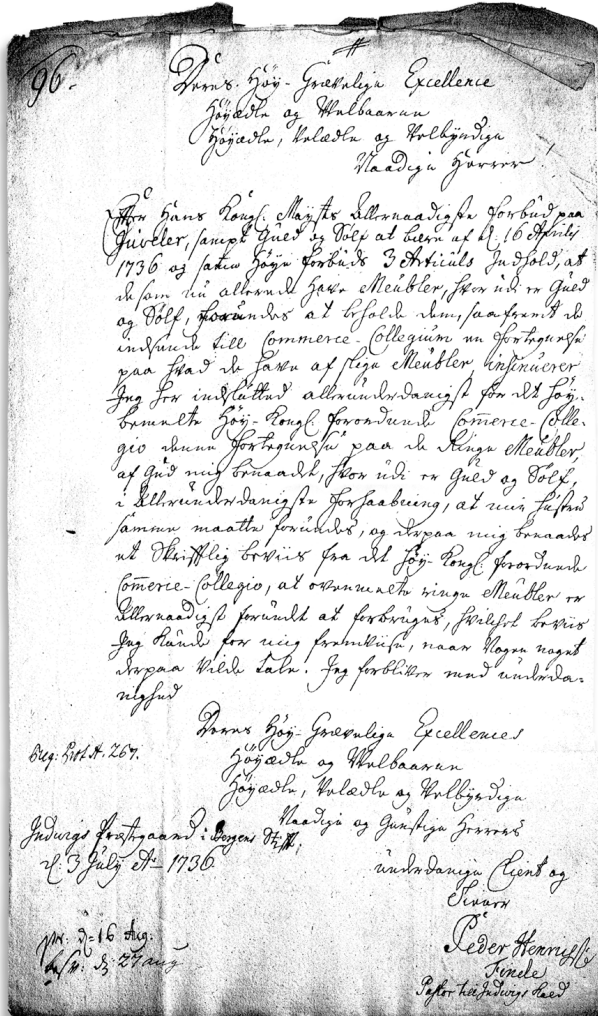 96.
Deres Høy-Grævelige Excellence
Høyædle og Welbaarne
Høyædle, Velædle og Velbyrdige
Naadige Herrer
Efter Hans Kongl. Maÿts Allernaadigste Forbud paa
Juveler, sampt Guld og Sølf at bære af d: 16 Aprily
1736 og samme Høye Forbuds 3 Articuls Indhold, at
de som nu allerede have Meubler, hvor udi er Guld
og Sølf, forundes at beholde dem, saafremt de
indsende till Commerce-Collegium en fortegnelse
paa hvad de have af slige Meubler, insinuerer
Jeg her indslutted allerunderdanigst for det Høy-
bemelte Høy-Kongl. forordnede Com̄erce-Colle-
gio denne fortegnelse paa de Ringe Meubler,
af Gud mig benaadet, hvor udi er Guld og Sølf,
i Allerunderdanigste Forhaabning, at min hustru
samme maatte forundes, og derpaa mig benaades
et Skrifftlig beviis fra det Høy-Kongl. forordnede
Com̄erce-Collegio, at ovenmelte ringe Meubler er
Allernaadigst forundt at forbruges, hvilchet beviis
Jeg kunde for mig fremviise, naar Nogen noget
derpaa vilde tale. Jeg forbliver med underda-
nighed
Deres Høy-Grævelige Excellences
Høyædle og Welbaarne
Høyædle, Velædle og Velbyrdige
Naadige og Gunstige Herrers
Prot A. 267.
Indwigs Præstegaard i Bergens Stift,
d: 3 July Ao 1736
underdanige Client og
Tiener
Peder
Finde
Pastor till Indwigs Kald
pr: d: 16 Aug:
d: 27 aug